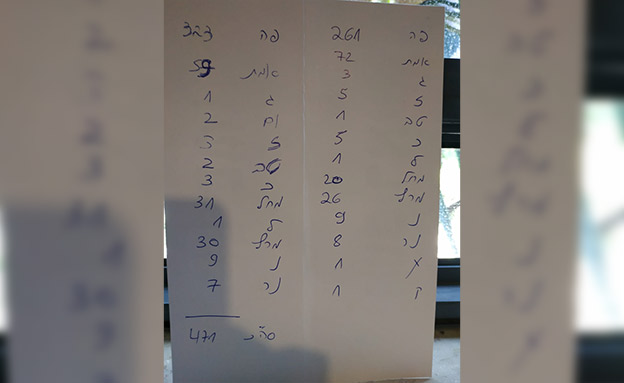 פה 261
אמת 72
ג 3
ז 5
טב 1
כ 5
ל 1
מחל 20
מרצ 26
נ 9
נר 8
1
1
פה 323
אמת 59
ג 1
ום 2
ז 3
טב 2
כ 3
מחל 31
ל 1
מרצ 30
נ 9
נר 7
סה"כ 471